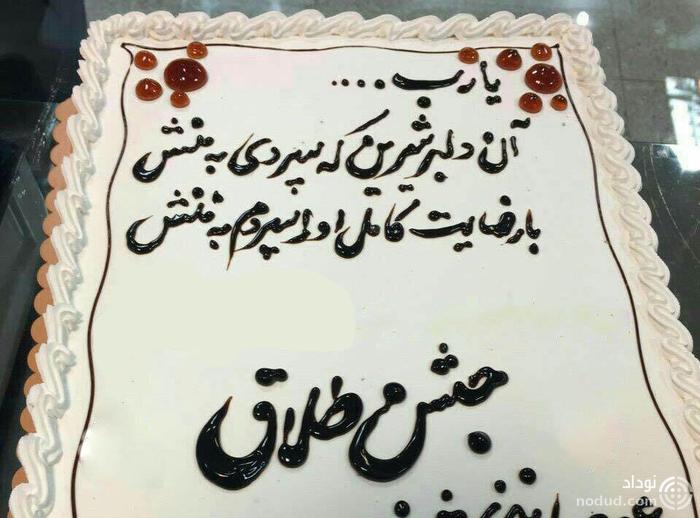 یا رب .....
آن دلبر شیرین که سپردی به منش
با رضایت کامل او را سپردم به ننش
جشن طلاق
نوداد
nodud.com